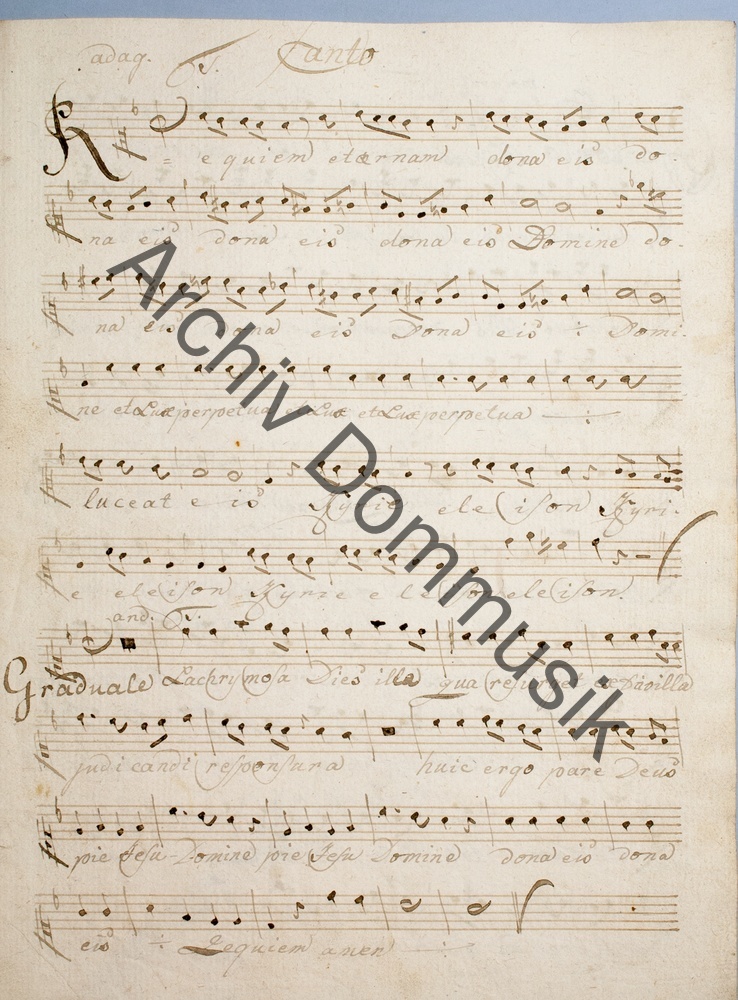 adag. T. Canto
R = equiem etærnam dona eis do-
na eis dona eis dona eis Domine do-
na eis dona eis Dona eis ÷ Domi-
ne et Lux perpetua et Lux et Lux perpetua — ÷
luceat eis Kyrie eleison Kyri-
e eleison Kyrie eleison eleison.
and. T.
Graduale Lachrymosa Dies illa qua resurget ex Davilla
judicandi responsura huic ergo pare Deus
pie Jesu Domine pie Jesu Domine dona eis dona
eis ÷ Requiem amen ÷
Archiv Dommusik